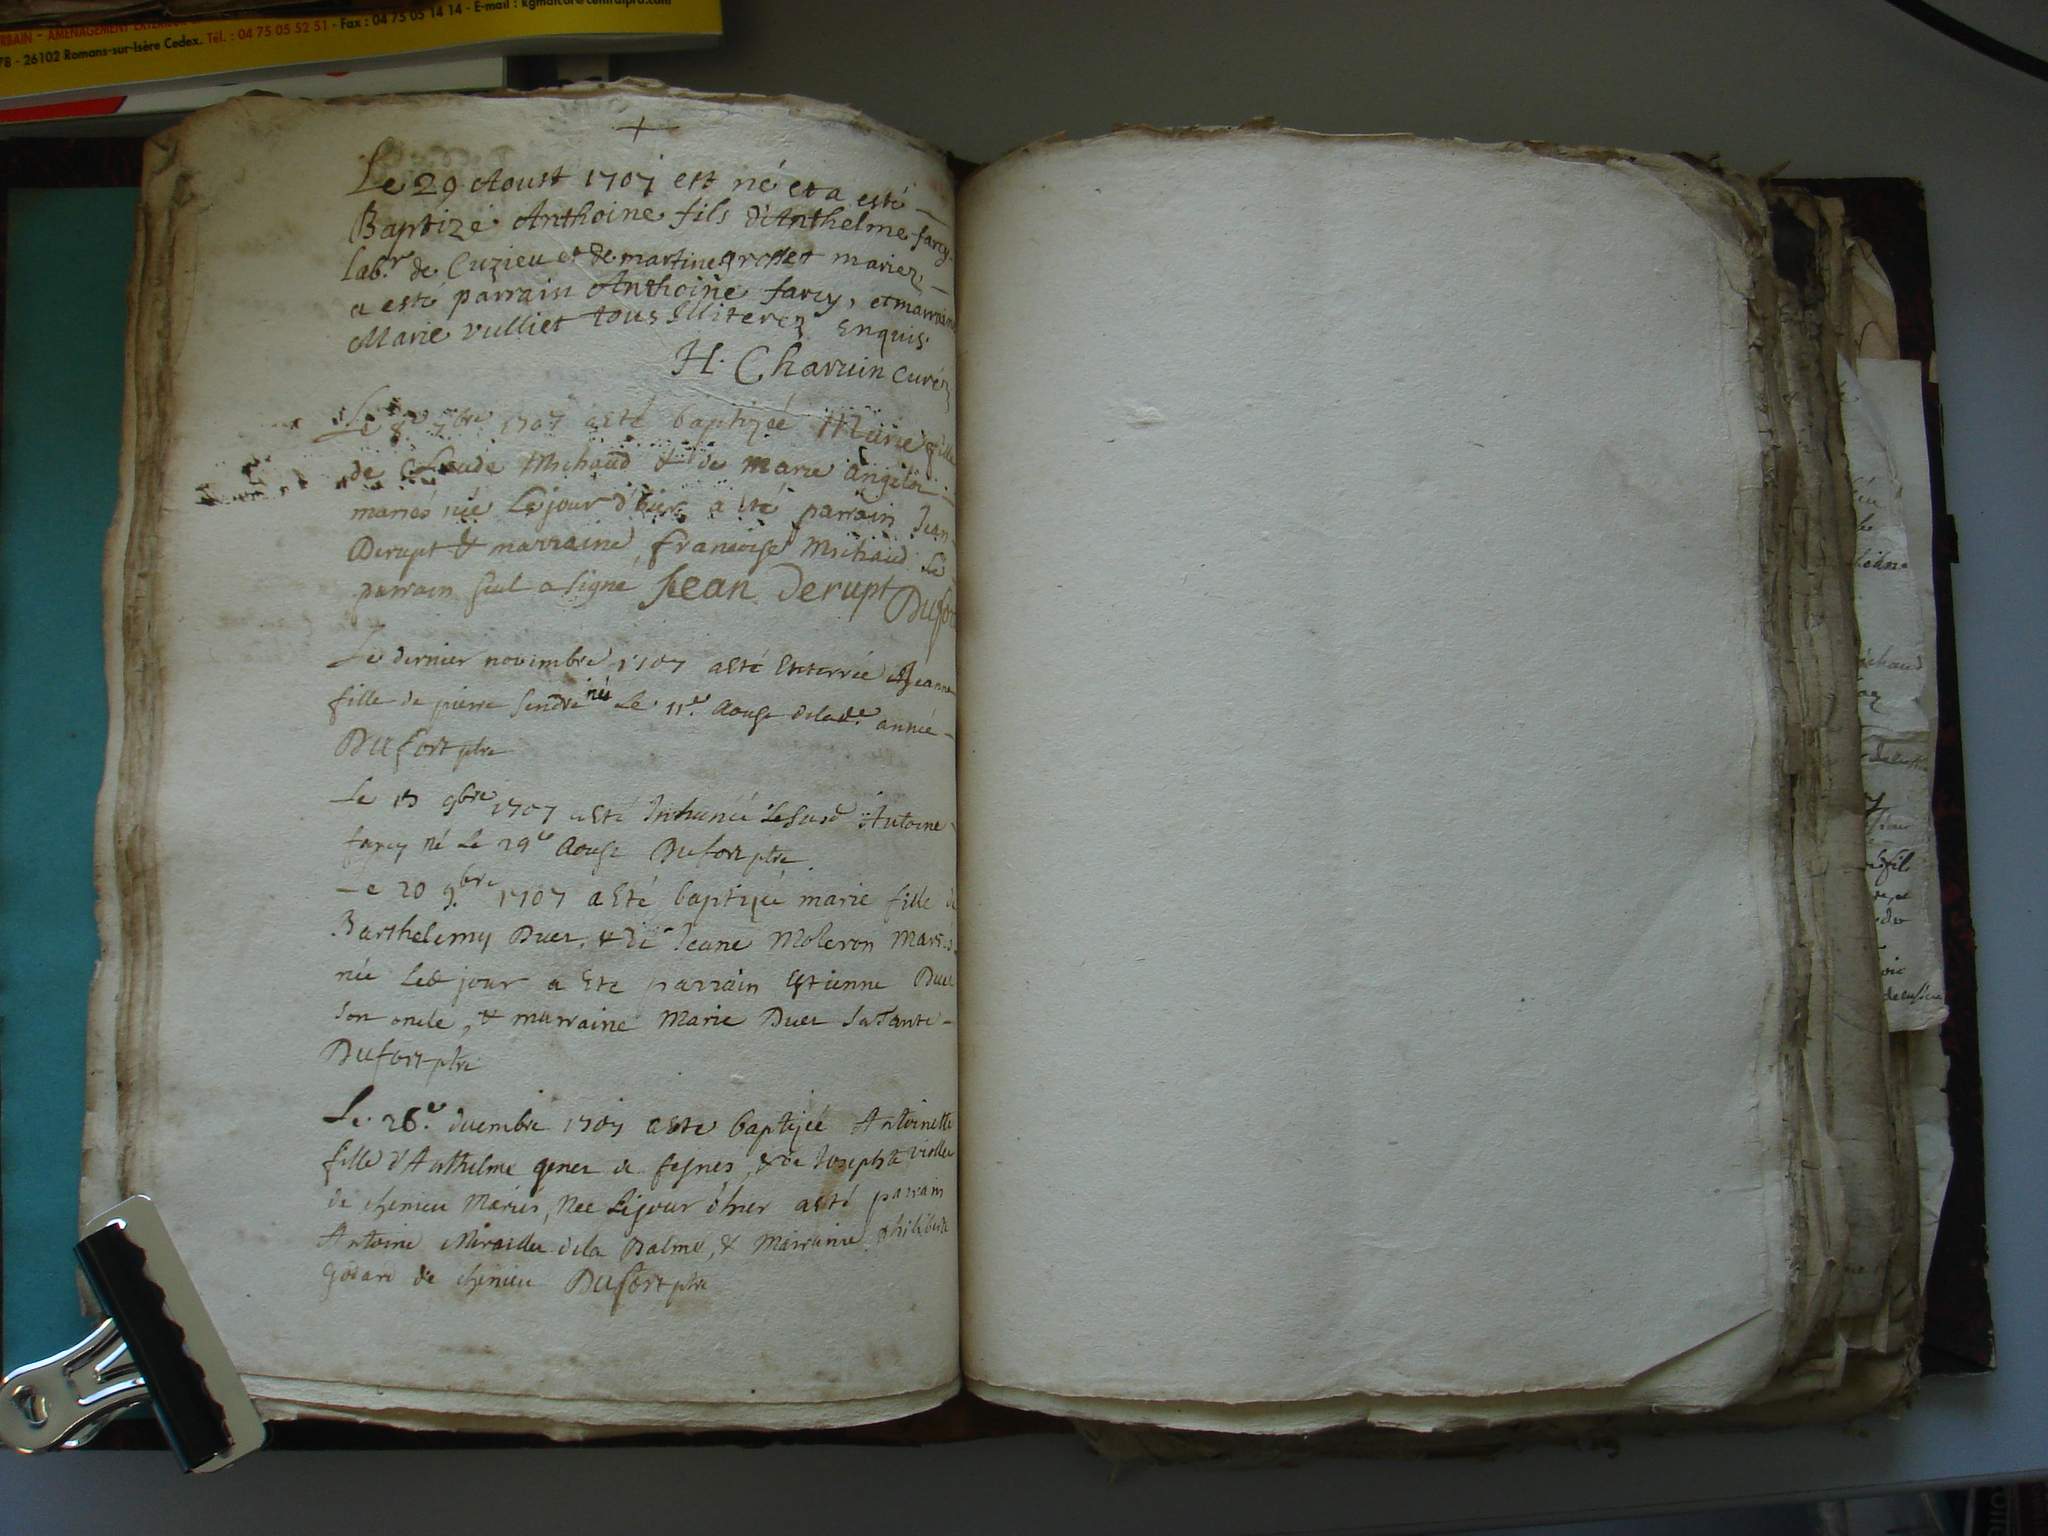 RBAIN - AMENAGEMENT
78 - 26102 Romans-sur-Isère Cedex. Tél. : 04 75 05 52 51 - Fax : 04 75 05 14 14 - E-mail :
Le 29 Aoust 1707 est né et a esté
Baptizé Anthoine fils d'Anthelme farcy
lab.r de Cuzieu et de martine grosset mariez
a esté parrain Anthoine farcy, et marraine
Marie vulliet tous Illiterez Enquis.
H. Charvin curé
Le 8e 7bre 1707 a esté baptizée Marie fille
de Claude Michaud & de marie
mariés née Le jour d'hier a été parrain Jean
Derupt & marraine francoise Michaud Le
parrain seul a signé Jean Derupt Dufort
Le dernier novembre 1707 a Eté Enterrée Jeanne
fille de pierre née Le 11e. Aoust de lad.e année
Dufort ptre
Le 9bre 1707 a Eté Inhumé Antoine
farcy né Le 29e Aoust Dufort ptre
Le 20 9.bre 1707 a Eté baptizée marie fille de
Barthelemy Duer & de Jeane Moleron Mariés
née Led jour a Eté parrain Estienne Duer
son oncle, & marraine Marie Duer sa Tante
Dufort ptre
Le 26.e decembre 1707 a Eté baptizée Antoinette
fille d'Anthelme gener de & de Josephte
de chemieu Mariés, Née Le jour d'hier a Eté parrain
Antoine de la Balme, & Marraine philiberte
Godard de chemieu Dufort ptre